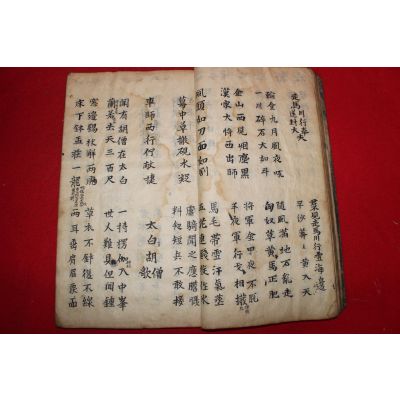 走馬川行奉
送封大夫
君不見走馬川行雪海邊
平沙莽莽黃入天
輪臺九月風夜吼
一川碎石大如斗
隨風滿地石亂走
匈奴草黃馬正肥
金山西見烟塵黑
漢家大將西出師
將軍金甲夜不脫
半夜軍行戈相撥
風頭如刀面如割
馬毛帶雪汗氣蒸
五花連錢旋作氷
幕中草檄硯水凝
虜騎聞之應膽慴
料知短兵不敢接
車師西行佇獻捷
太白胡僧歌
聞有胡僧在太白
蘭若去天三百尺
一持楞伽入中峯
世人難見但聞鍾
窓邊錫杖解兩虎
床下鉢盂藏一龍
草衣不針復不線
兩耳垂肩眉覆面